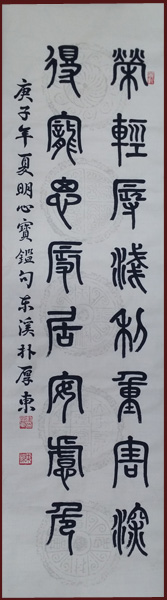 榮輕辱淺利重害深
得寵思辱居安慮危
庚子年夏明心寶鑑句 东溪朴厚東